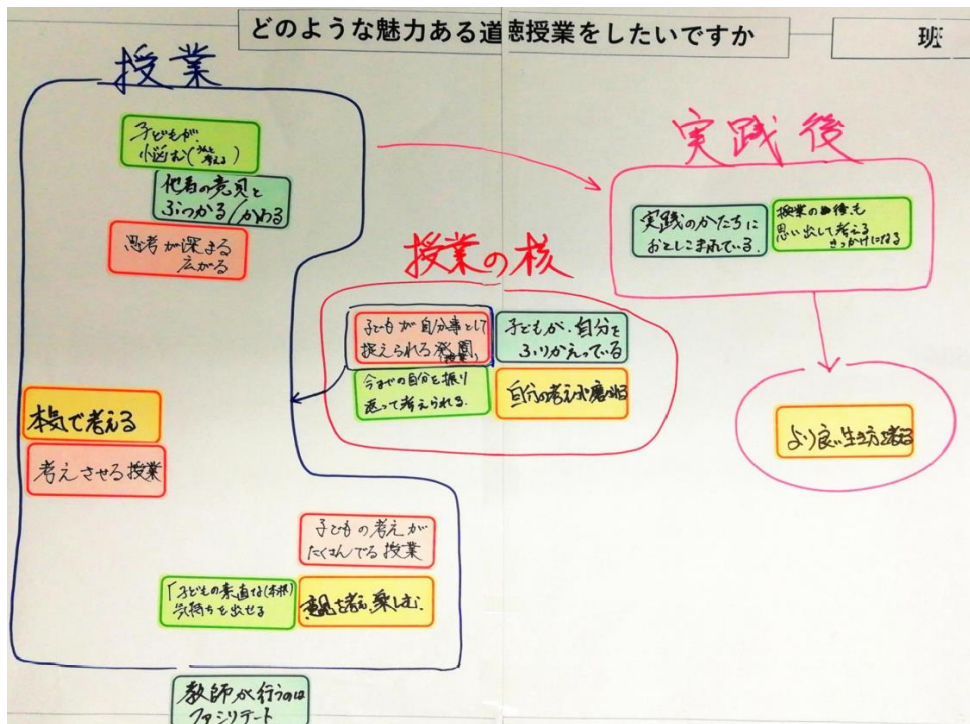 どのような魅力ある道徳授業をしたいですか
班
授業
子どもが、
悩む(うんと考える)
他者の意見と
ぶつかる/かわる
思考が深まる
広がる
本気で考える
考えさせる授業
子どもの考えが
たくさんでる授業
「子どもの素直な(本根)
気持ちを出せる
を考え、楽しむ、
教師が行うのは
ファシリテート
授業の核
子どもが自分事として
捉えられる発問
(授業)
子どもが、自分を
ふりかえっている
今までの自分を振り
返って考えられる。
自分の考えが磨かれる
実践後
実践のかたちに
おとしこまれている。
授業の後も
思い出して考える
きっかけになる
より良い生き方を考える